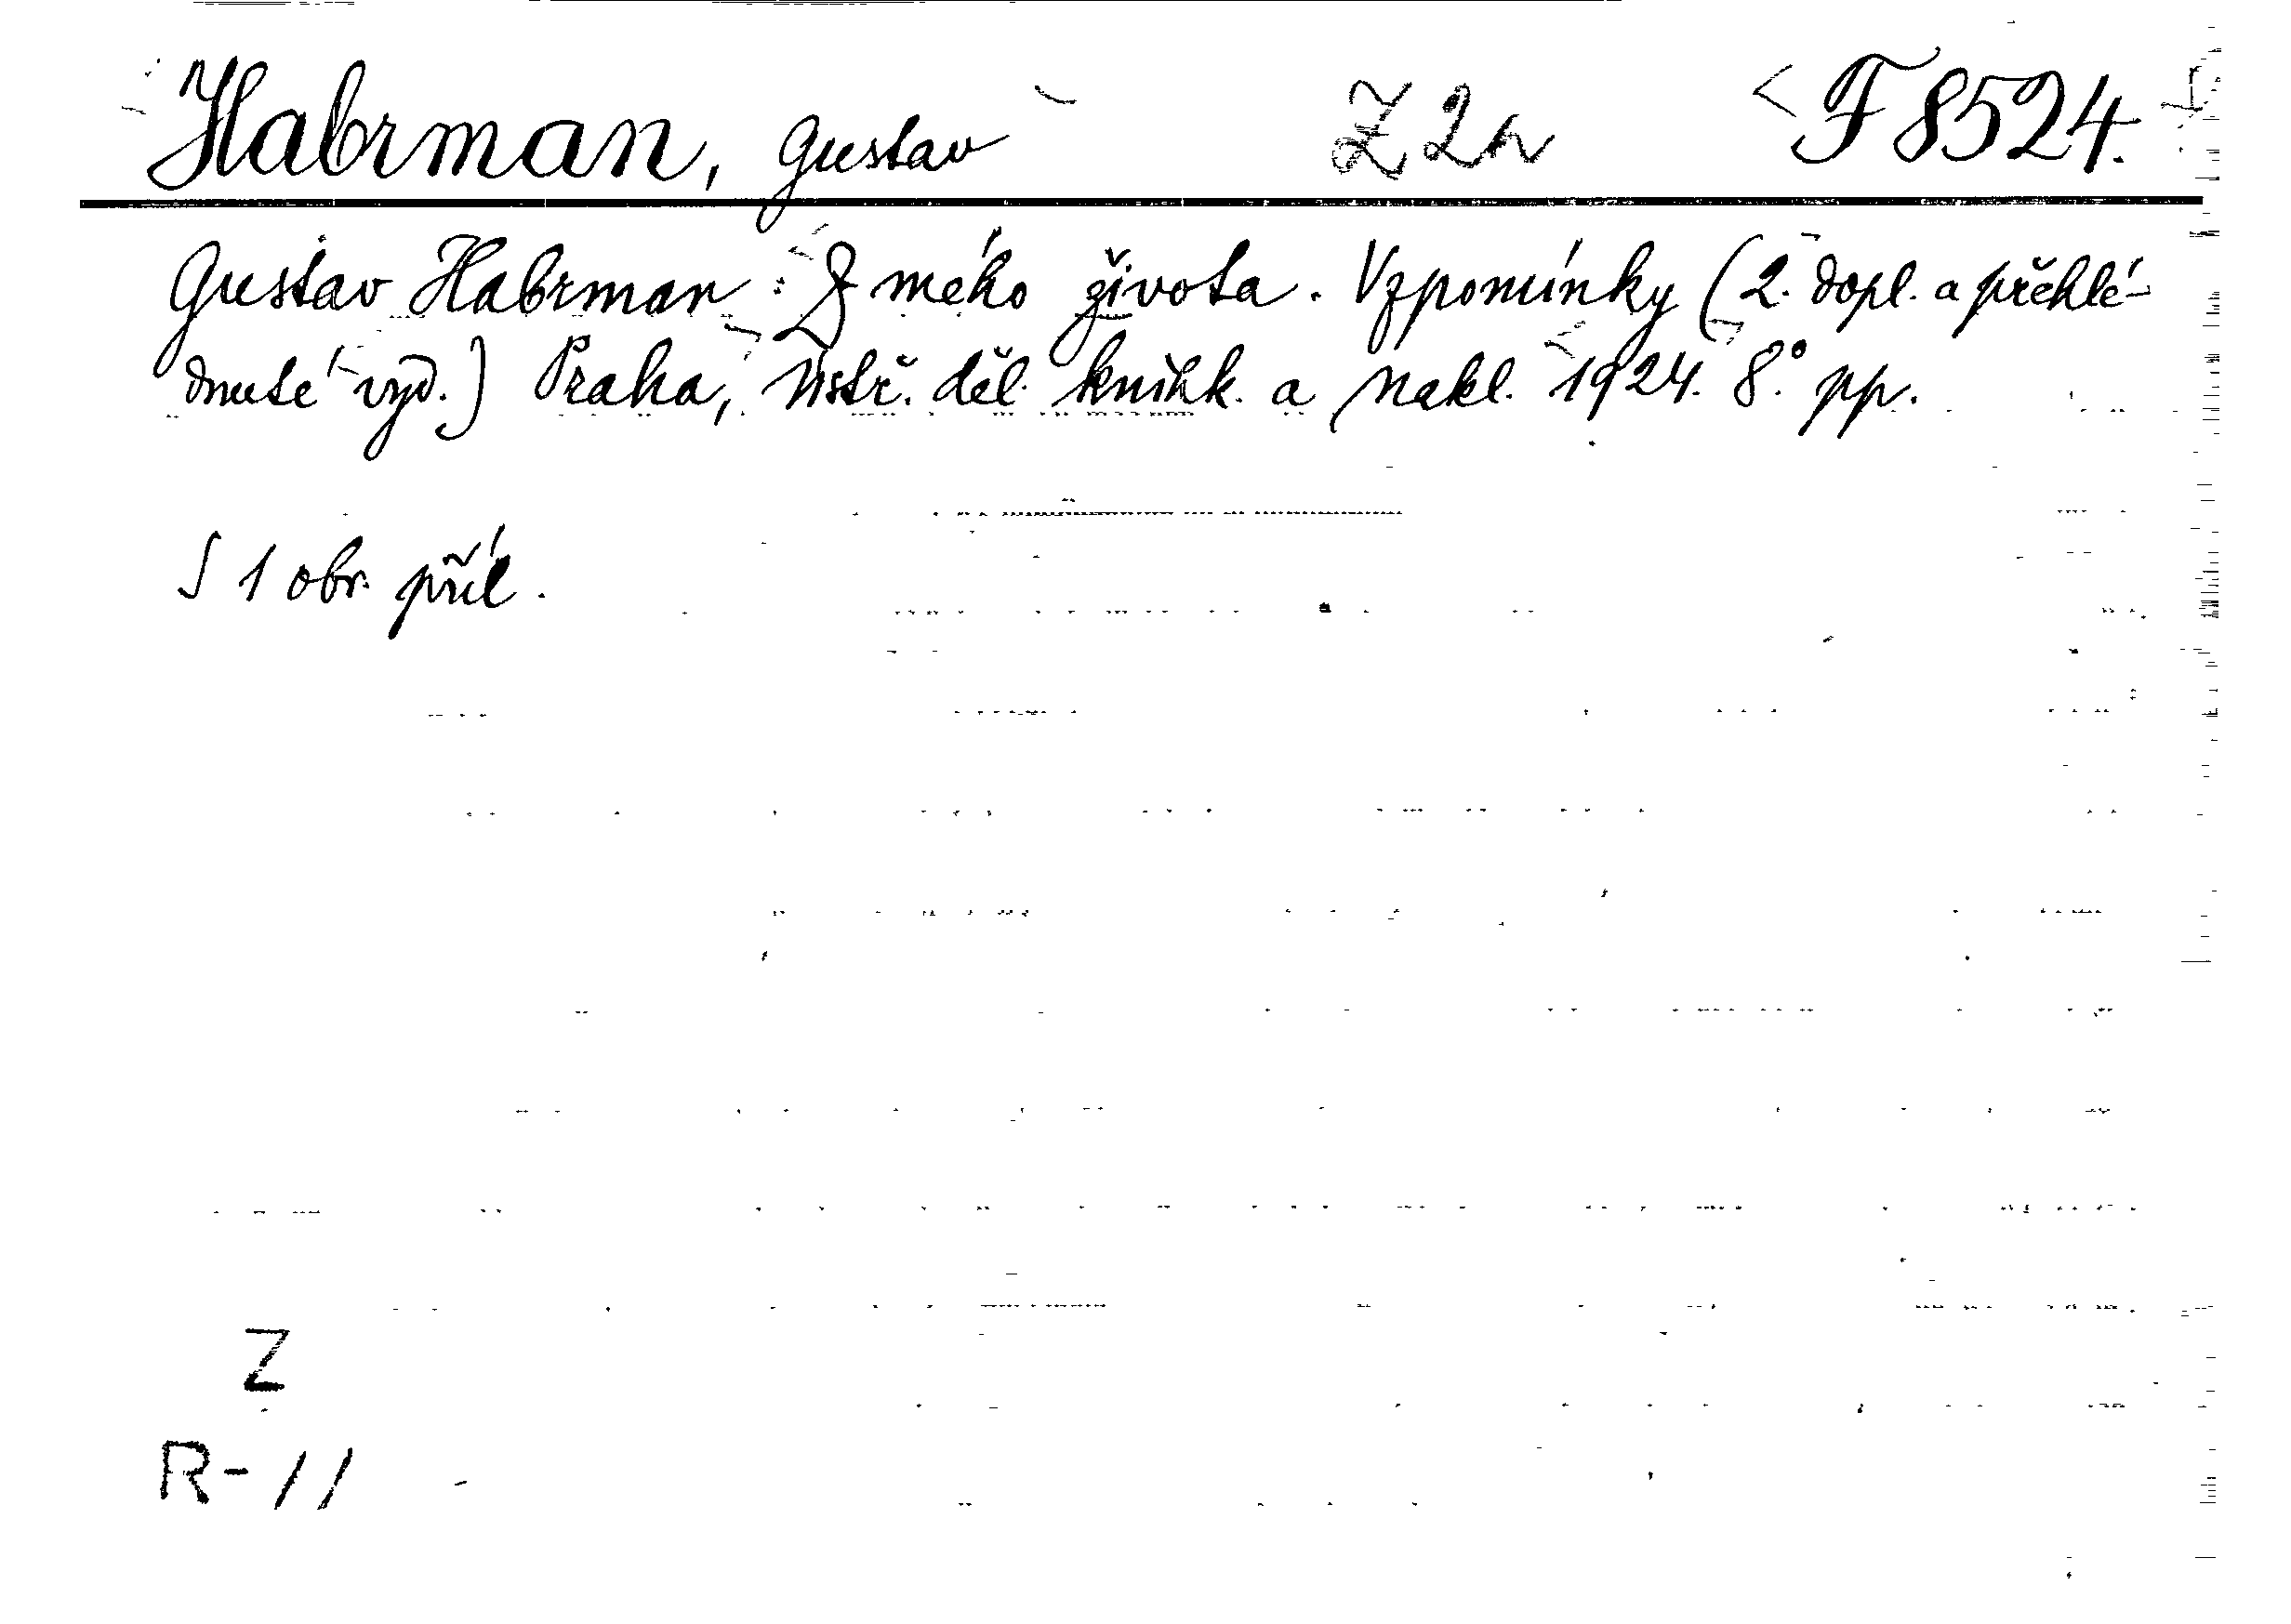 Habrman, Gustav Z 2a F 8524.
Gustav Habrman: Z mého života. Vzpomínky (2. dopl. a přehlé-
dnuté vyd.) Praha, Ústř. děl. knihk. a nakl. 1924. 8° pp.
S 1 obr. příl.
Z
R-11